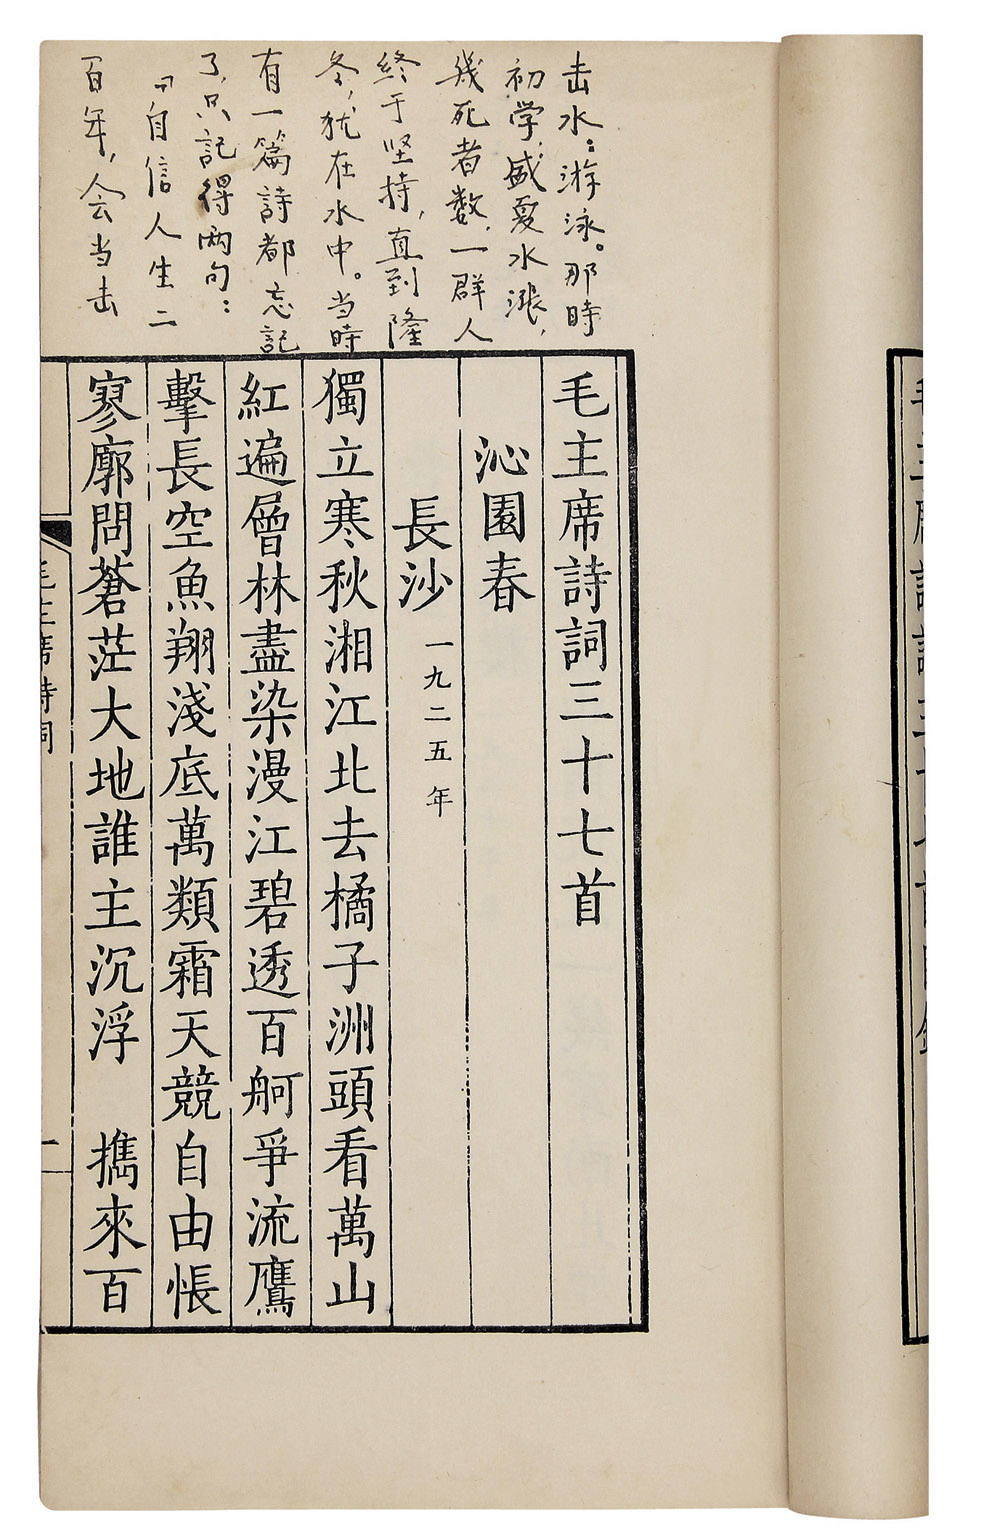 击水：游泳。那時
初学，盛夏水漲，
幾死者数，一群人
終于坚持，直到隆
冬，犹在水中。当時
有一篇詩都忘記
了，只記得两句：
『自信人生二
百年，会当击
毛主席詩詞三十七首
沁園春
長沙 一九二五年
獨立寒秋湘江北去橘子洲頭看萬山
紅遍層林盡染漫江碧透百舸爭流鷹
擊長空魚翔淺底萬類霜天競自由悵
寥廓問蒼茫大地誰主沉浮　擕來百
毛主席詩詞
一